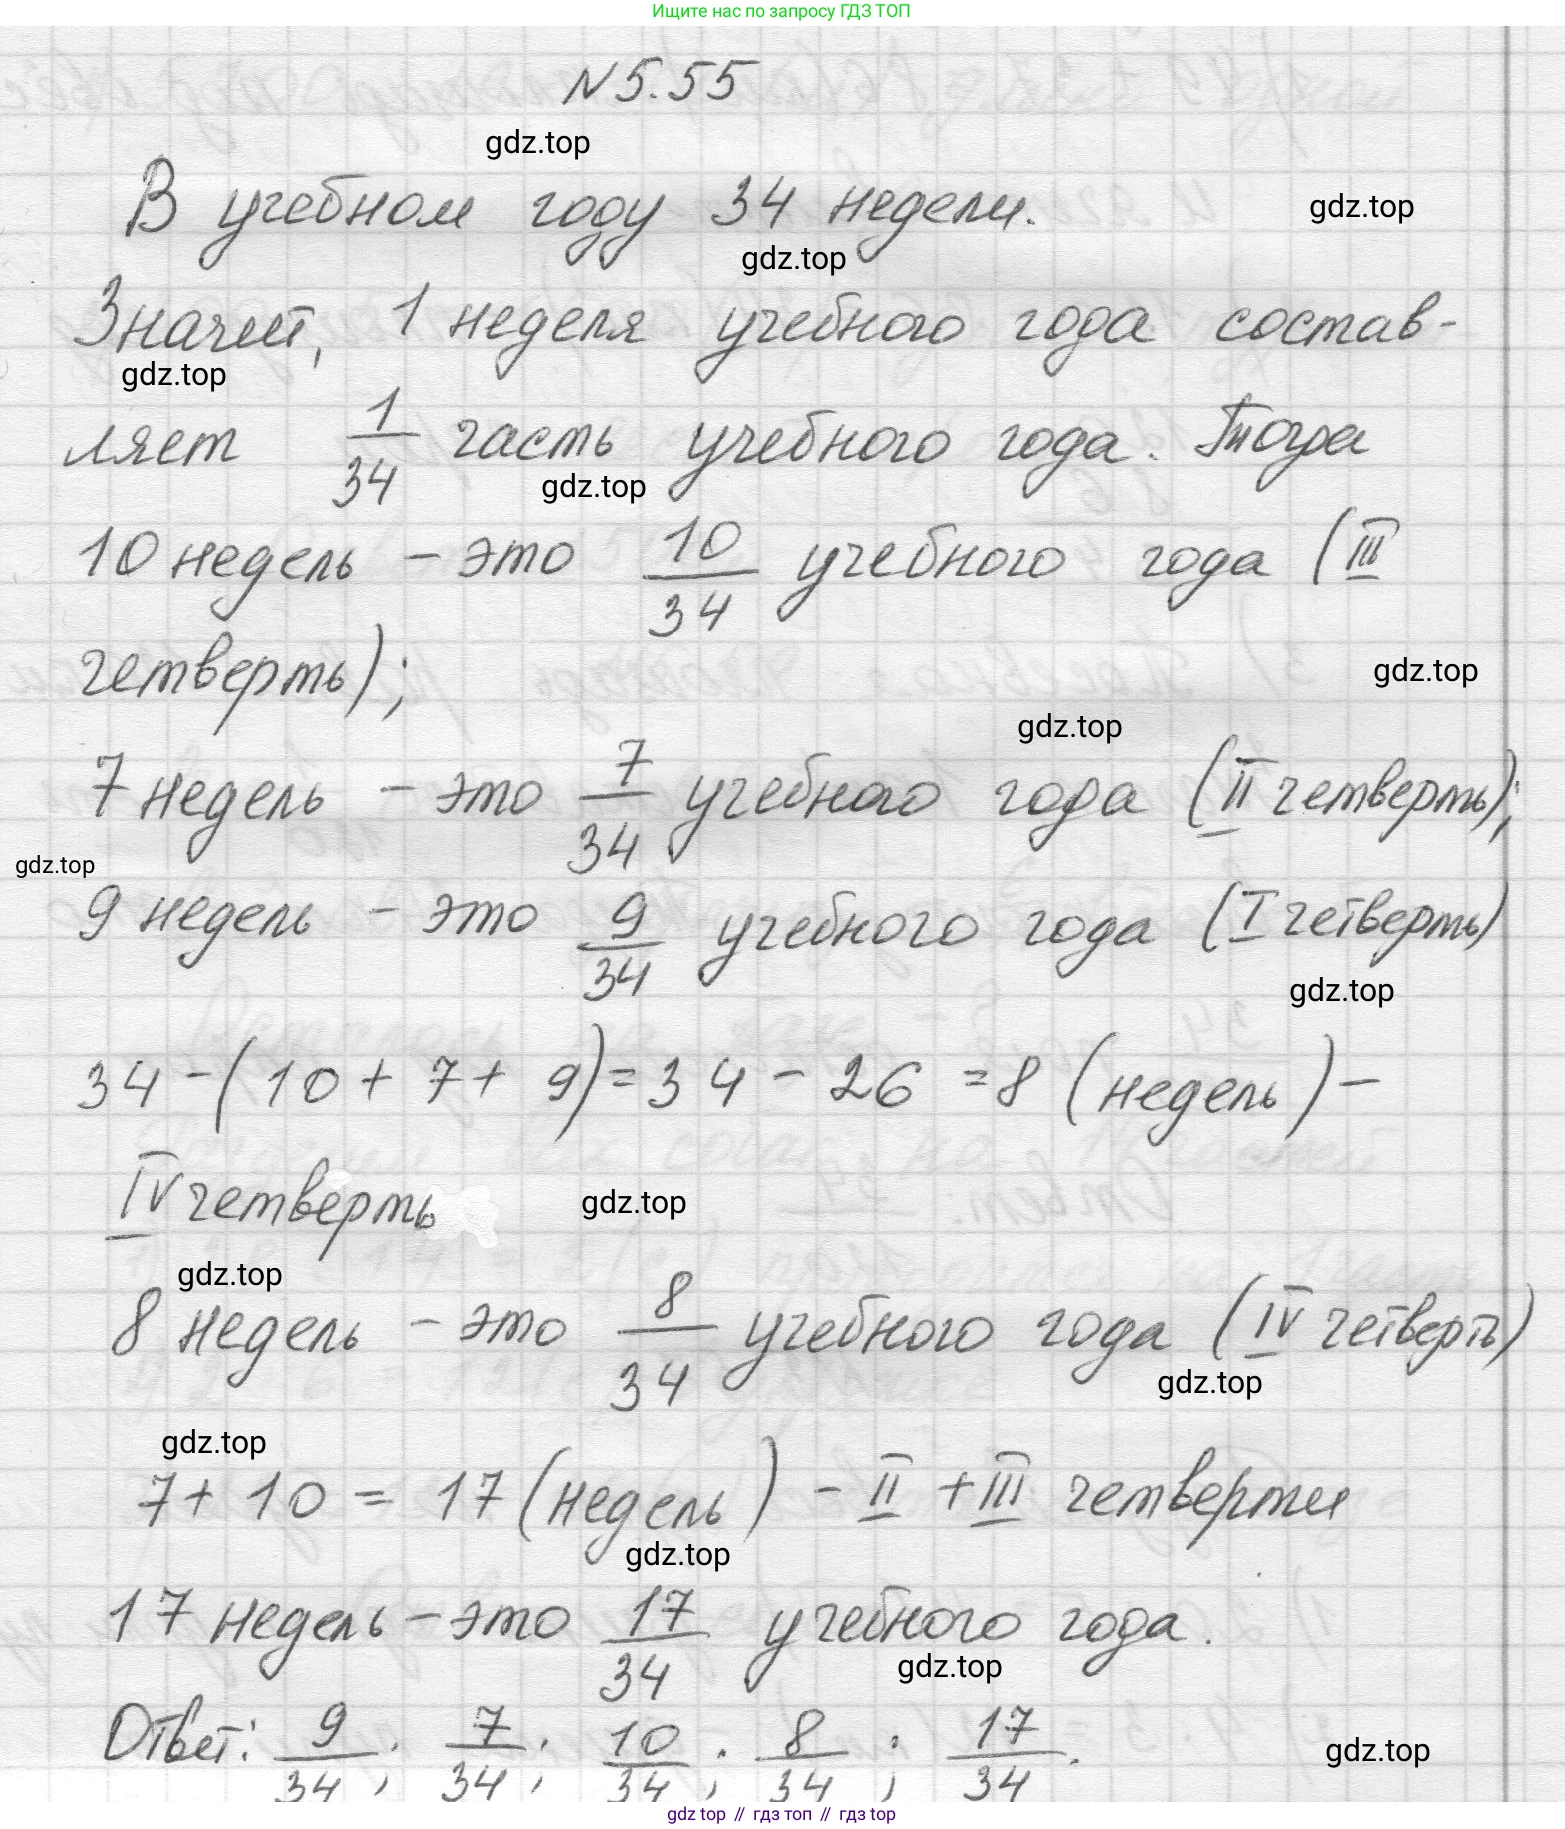 Ищите нас по запросу ГДЗ ТОП
№ 5.55
gdz.top
В учебном году 34 недели.
gdz.top
gdz.top
Значит, 1 неделя учебного года состав-
gdz.top
ляет 1/34 часть учебного года. Тогда
gdz.top
10 недель - это 10/34 учебного года (III
четверть);
gdz.top
gdz.top
7 недель - это 7/34 учебного года (II четверть);
gdz.top
9 недель - это 9/34 учебного года (I четверть)
gdz.top
34 - (10 + 7 + 9) = 34 - 26 = 8 (недель) -
IV четверть
gdz.top
gdz.top
8 недель - это 8/34 учебного года (IV четверть)
gdz.top
gdz.top
7 + 10 = 17 (недель) - II + III четверти
gdz.top
17 недель - это 17/34 учебного года.
gdz.top
Ответ: 9/34; 7/34; 10/34; 8/34; 17/34.
gdz.top
gdz top // гдз топ // гдз top